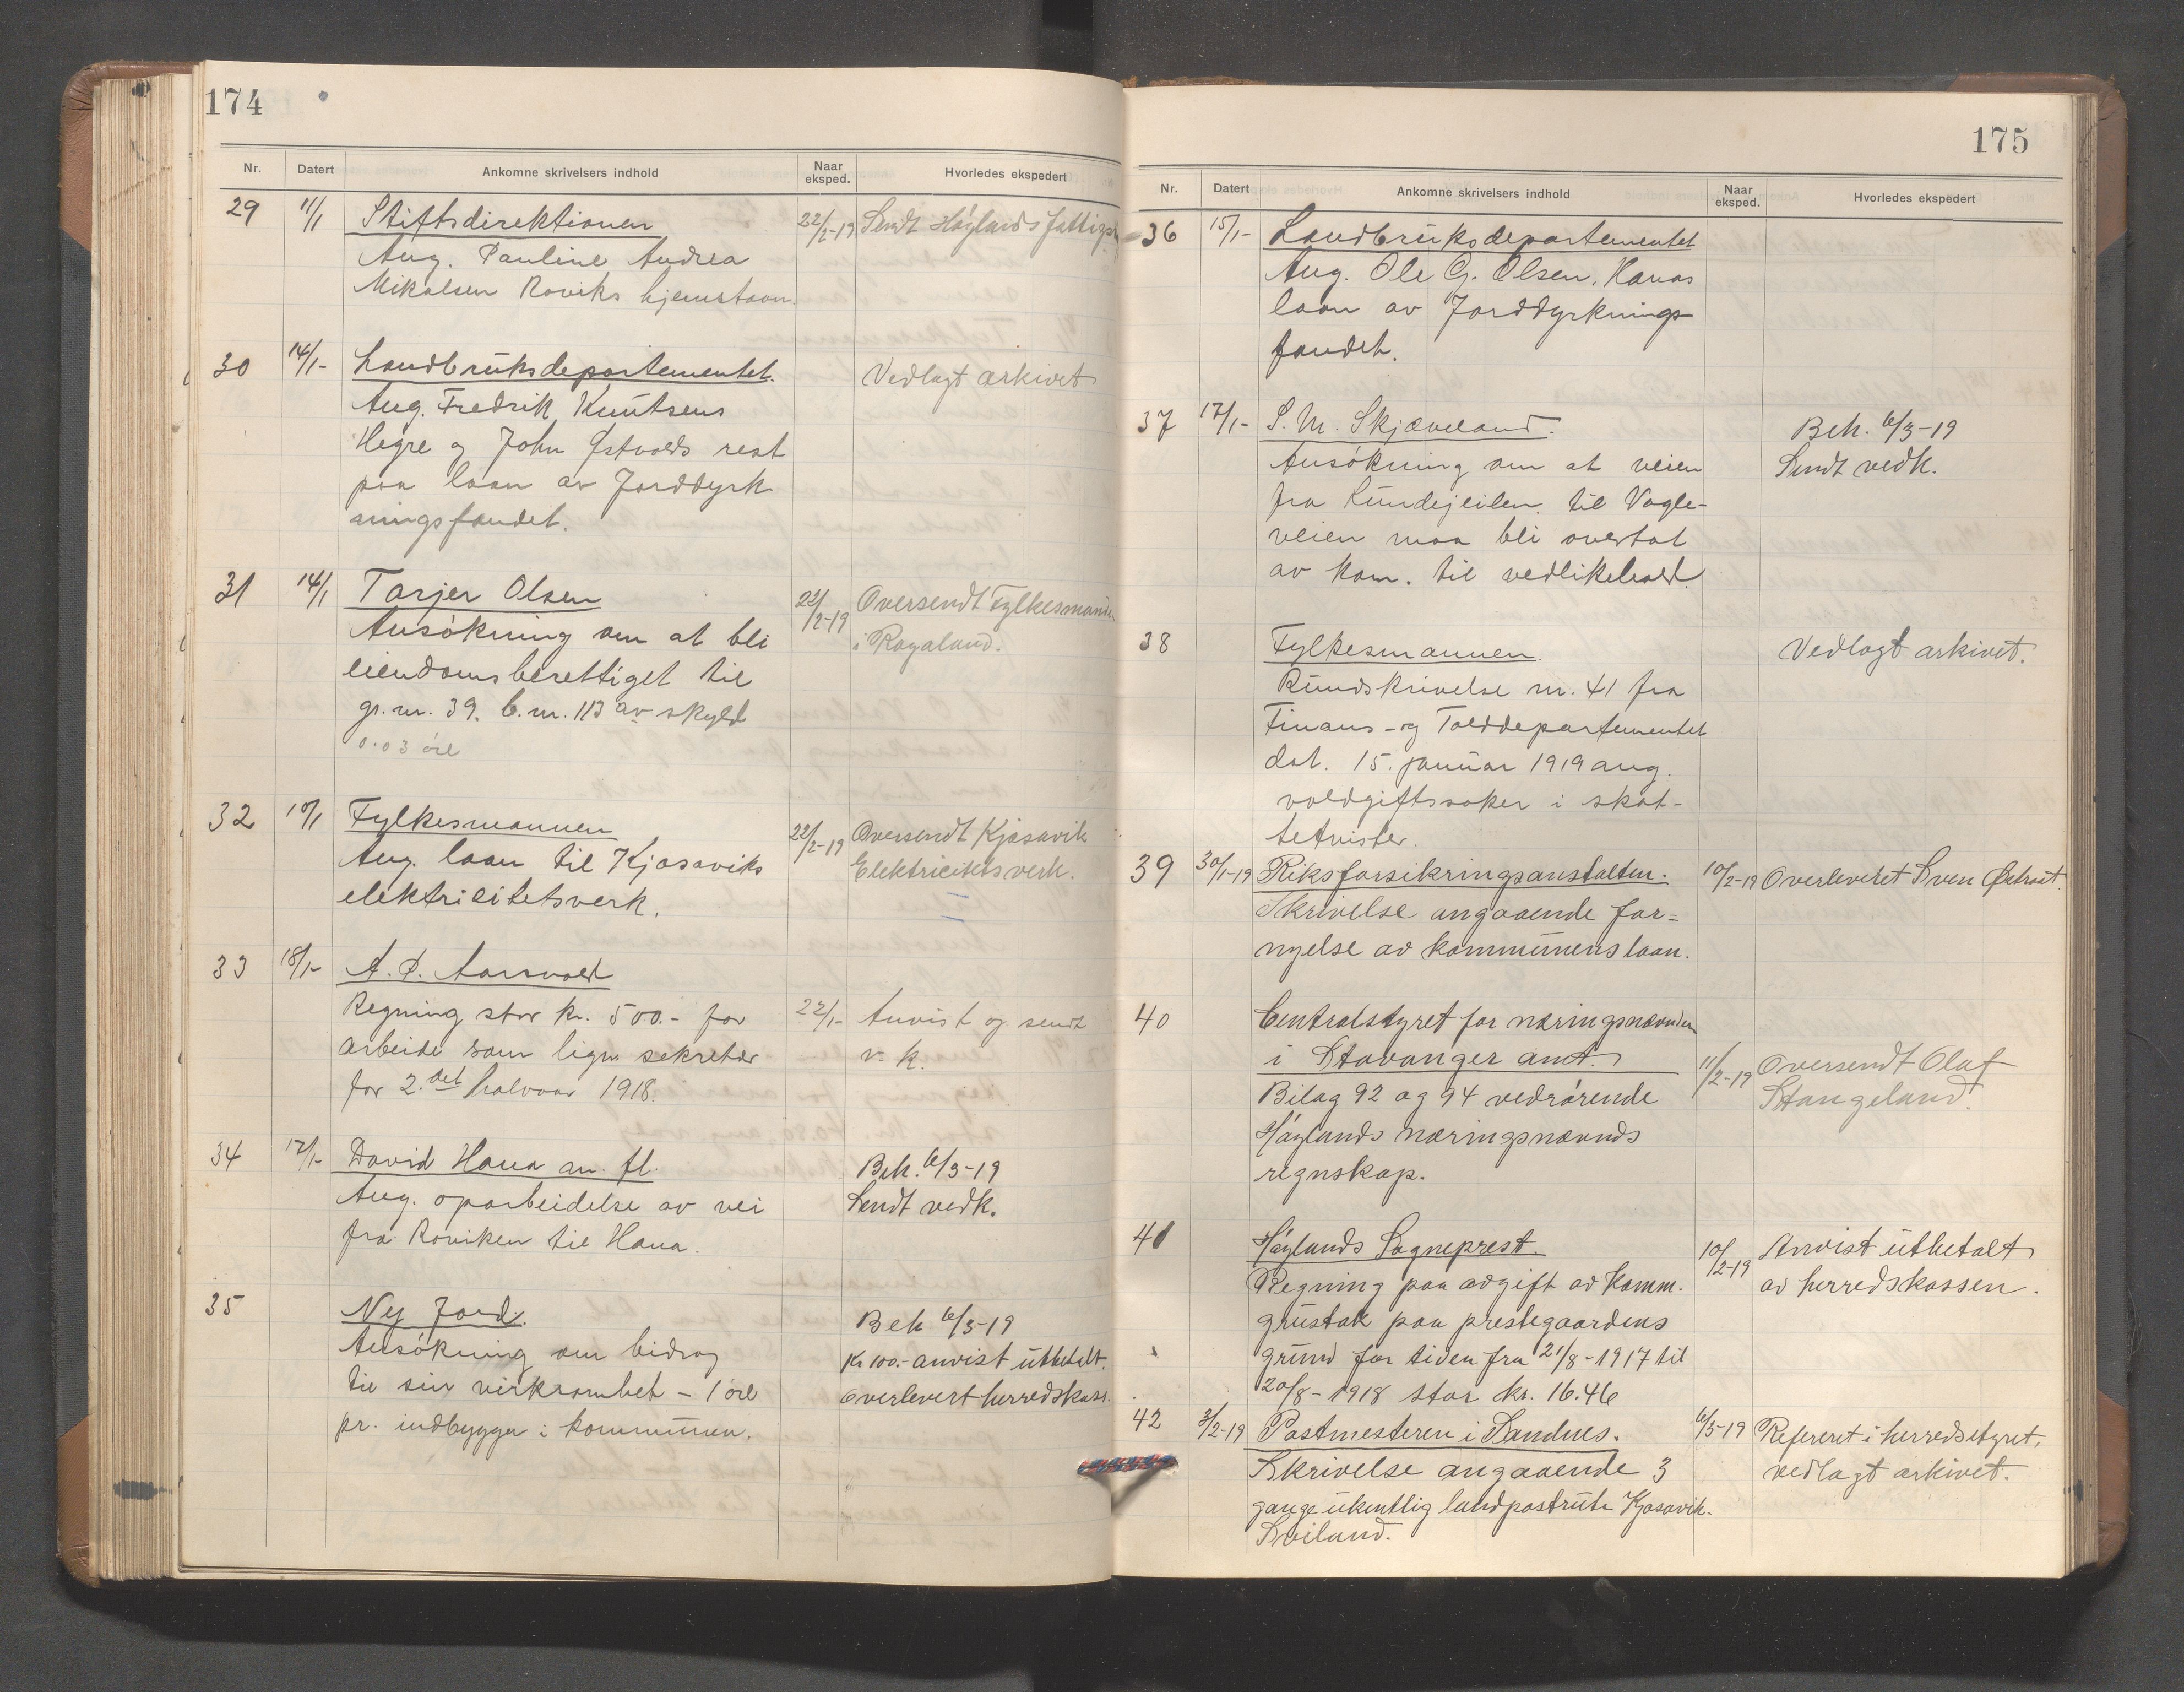 174
Nr. Datert Ankomne skrivelsers indhold Naar eksped. Hvorledes ekspedert
29 11/1 Stiftsdirektionen 22/2-19 Sendt Høylands
Ang. Pauline Andrea
Mikalsen Roviks hjemstavn.
30 14/1- Landbruksdepartementet. Vedlagt arkivet
Ang. Fredrik Knutsens
Hegre og John Østvolds rest
paa laan av Jorddyrk
ningsfondet.
31 14/1 Tarjer Olsen 22/2-19 Oversendt Fylkesmanden
Ansøkning om at bli i Rogaland.
eiendomsberettiget til
gr. nr. 39. b. nr. 113 av skyld
0.03 øre
32 10/1 Fylkesmannen 22/2-19 Oversendt Kjosavik
Ang. laan til Kjosaviks Elektricitetsverk.
elektricitetsverk.
33 18/1- A. P. Aarsvold
Regning stor kr. 500.- for 22/1- Anvist og sendt
arbeide som lign. sekretær v. k.
for 2.det halvaar 1918.
34 17/1- David Hana m. fl. Beh. 6/3-19
Ang. oparbeidelse av vei Sendt vedk.
fra Roviken til Hana.
35 Ny Jord. Beh 6/3-19
Ansøkning om bidrag Kr 100.- anvist utbetalt.
til sin virksomhet - 1 øre overlevert herredskass.
pr. indbygger i kommunen.
175
Nr. Datert Ankomne skrivelsers indhold Naar eksped. Hvorledes ekspedert
36 15/1- Landbruksdepartementet
Ang. Ole G. Olsen, Hanas
laan av Jorddyrknings
fondet.
37 17/1- S. M. Skjæveland. Beh. 6/3-19
Ansøkning om at veien Sendt vedk.
fra Lundejeilen til Vagle-
veien maa bli overtat
av kom. til vedlikehold.
38 Fylkesmannen. Vedlagt arkivet.
Rundskrivelse nr. 41 fra
Finans- og Tolddepartementet
dat. 15. januar 1919 ang.
voldgiftssaker i skat-
tetvister.
39 30/1-19 Riksforsikringsanstalten. 10/2-19 Overleveret Sven
Skrivelse angaaende for=
nyelse av kommunens laan.
40 Centralstyret for næringsnævnden
i Stavanger amt. 11/2-19 Oversendt Olaf
Bilag 92 og 94 vedrørende Stangeland.
Høylands næringsnævnds
regnskap.
41 Høylands Sogneprest. 10/2-19 Anvist utbetalt
Regning paa avgift av komm. av herredskassen.
grustak paa prestegaardens
grund for tiden fra 21/8-1917 til
20/8-1918 stor kr. 16.46
42 3/2-19 Postmesteren i Sandnes. 6/3-19 Referert i herredsstyret,
Skrivelse angaaende 3 vedlagt arkivet.
gange ukentlig landpostrute Kjosavik-
Sviland.